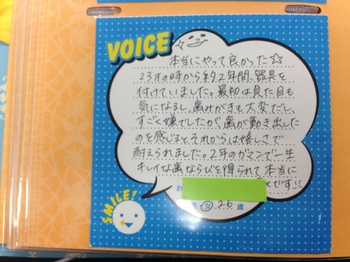 VOICE
本当にやって良かった☆
23才の時から約2年間、器具を
付けていました。最初は見た目も
気になるし、歯みがきも大変だし、
すごく嫌でしたが、歯が動き出した
のを感じると、それからは嬉しさで
耐えられました。2年のガマンで一生
キレイな歯ならびを得られて本当に
です!!
お
女 26 歳
SMILE!